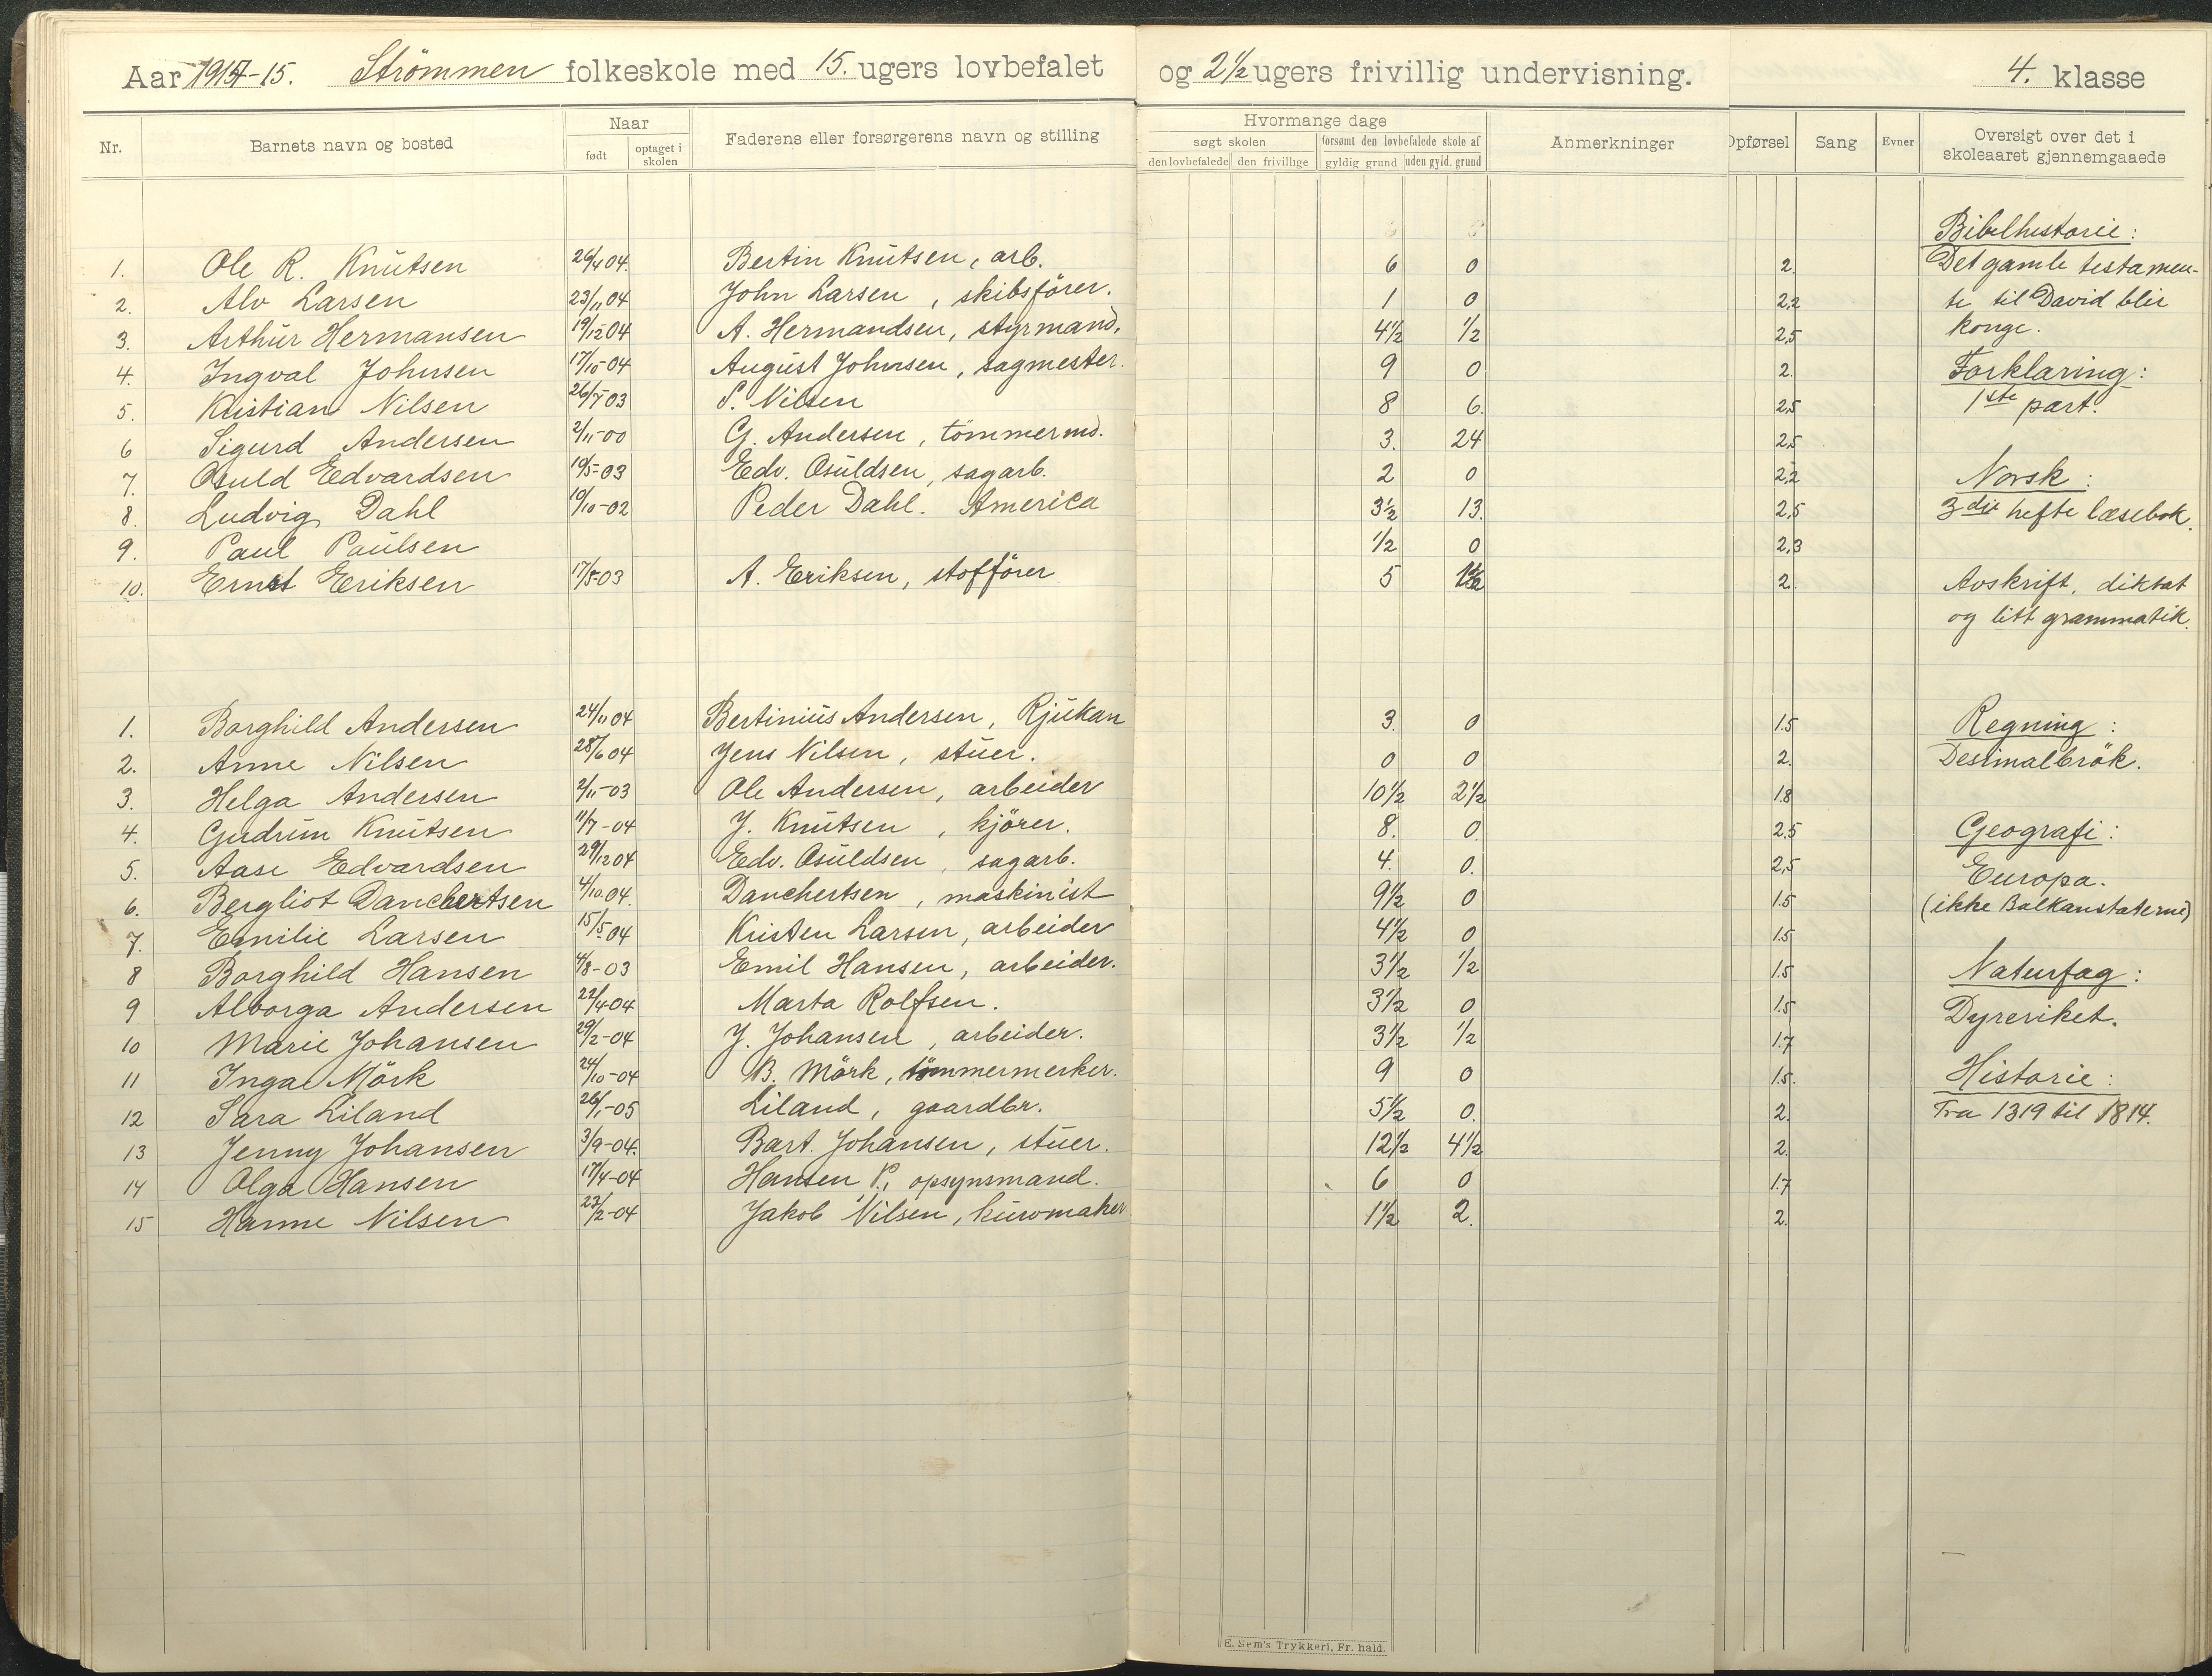 Aar 1914-15. Strömmen folkeskole med 15. ugers lovbefalet og 2 1/2 ugers frivillig undervisning. 4. klasse
Nr. Barnets navn og bosted Naar født optaget i skolen Faderens eller forsørgerens navn og stilling Hvormange dage søgt skolen den lovbefalede den frivillige forsømt den lovbefalede skole af gyldig grund uden gyld. grund Anmerkninger Opførsel Sang Evner Oversigt over det i skoleaaret gjennemgaaede
Bibelhistorie:
1. Ole R. Knutsen 26/4 04. Bertin Knutsen, arb. 6 0 2. Det gamle testamen-
2. Alv Larsen 23/11 04 John Larsen, skibsfører. 1 0 2,2 te til David blir
3. Arthur Hermansen 19/12 04 A. Hermandsen, styrmand. 4 1/2 1/2 2,5 konge.
4. Ingval Johnsen 17/10-04 August Johnsen, sagmester. 9 0 2. Forklaring:
5. Kristian Nilsen 26/7 03 S. Nilsen 8 6. 2,5 1ste part.
6 Sigurd Andersen 2/11-00 G. Andersen, tömmermd. 3. 24 2,5
7. Osuld Edvardsen 19/5-03 Edv. Osuldsen, sagarb. 2 0 2,2 Norsk:
8. Ludvig Dahl 10/10-02 Peder Dahl. America 3 1/2 13. 2,5 3die hefte læsebok.
9. Paul Paulsen 1/2 0 2,3
10. Ernst Eriksen 17/5-03 A. Eriksen, stofförer 5 2. Avskrift, diktat
og litt grammatik.
1. Borghild Andersen 24/11 04 Bertinius Andersen, Rjukan 3. 0 1.5 Regning:
2. Anne Nilsen 28/6 04 Jens Nilsen, stuer. 0 0 2. Desimalbrök.
3. Helga Andersen 2/11-03 Ole Andersen, arbeider 10 1/2 2 1/2 1.8
4. Gudrun Knutsen 11/7-04 J. Knutsen, kjörer. 8. 0. 2.5 Geografi:
5. Aase Edvardsen 29/12 04 Edv. Osuldsen, sagarb. 4. 0. 2,5 Europa.
6. Bergliot Danchertsen 4/10.04. Danchertsen, maskinist 9 1/2 0 1.5 (ikke Balkanstaterne)
7. Emilie Larsen 15/5 04 Kristen Larsen, arbeider 4 1/2 0 1.5
8 Borghild Hansen 4/8-03 Emil Hansen, arbeider. 3 1/2 1/2 1.5 Naturfag:
9 Alborga Andersen 22/4-04 Marta Rolfsen. 3 1/2 0 1.5 Dyreriket.
10 Marie Johansen 29/2-04 J. Johansen, arbeider. 3 1/2 1/2 1.7
11 Inga Mörk 24/10-04 B. Mörk, tömmermerker. 9 0 1.5. Historie:
12 Sara Liland 26/1-05 Liland, gaardbr. 5 1/2 0. 2. Fra 1319 til 1814.
13 Jenny Johansen 3/9-04. Bart. Johansen, stuer. 12 1/2 4 1/2 2.
14 Olga Hansen 17/4-04 Hansen P., opsynsmand. 6 0 1.7
15 Hanne Nilsen 23/2-04 Jakob Nilsen, kurvmaker 1 1/2 2. 2.
E. Sem's Trykkeri, Fr. hald.